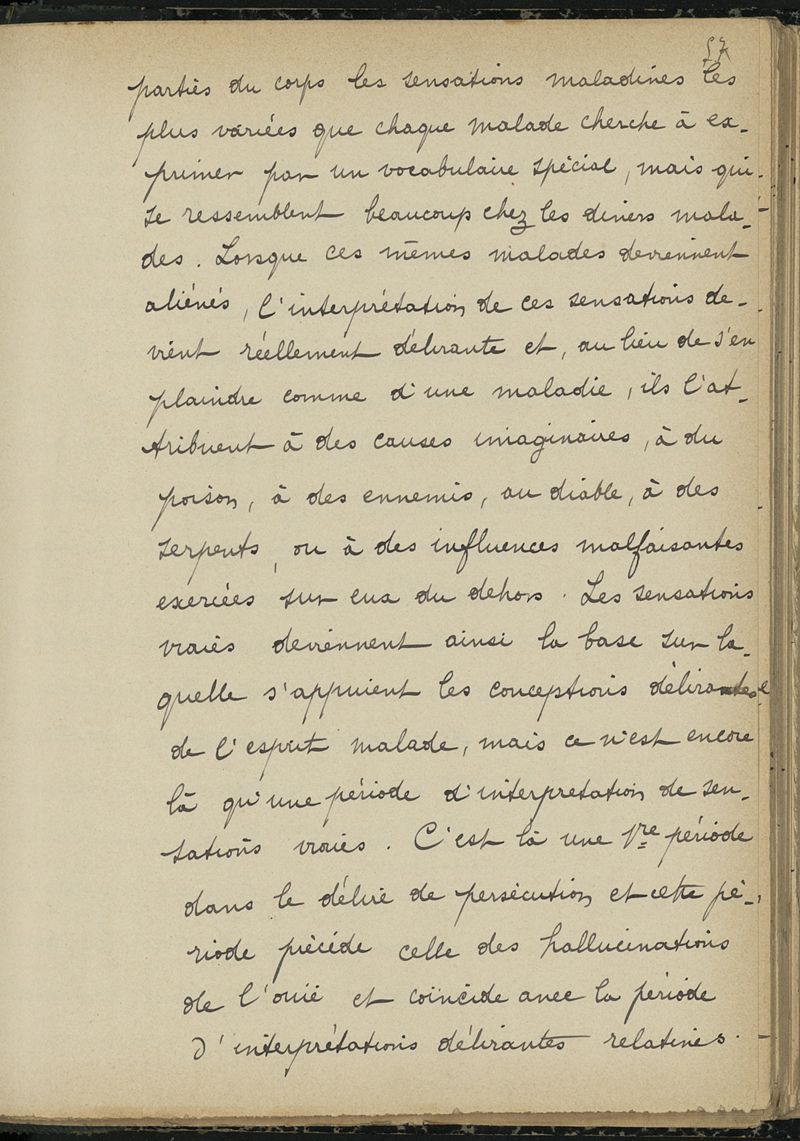 57
parties du corps les sensations maladives les
plus variées que chaque malade cherche à ex-
primer par un vocabulaire spécial, mais qui
se ressemblent beaucoup chez les divers mala-
des. Lorsque ces mêmes malades deviennent
aliénés, l'interprétation de ces sensations de-
vient réellement délirante et, au lieu de s'en
plaindre comme d'une maladie, ils l'at-
tribuent à des causes imaginaires, à du
poison, à des ennemis, au diable, à des
serpents, ou à des influences malfaisantes
exercées sur eux du dehors. Les sensations
vraies deviennent ainsi la base sur la-
quelle s'appuient les conceptions délirantes
de l'esprit malade, mais ce n'est encore
là qu'une période d'interpretation de sen-
sations vraies. C'est là une 1re période
dans le délire de persécution et cette pé-
riode précède celle des hallucinations
de l'ouïe et coïncide avec la période
d'interprétations délirantes relatives.